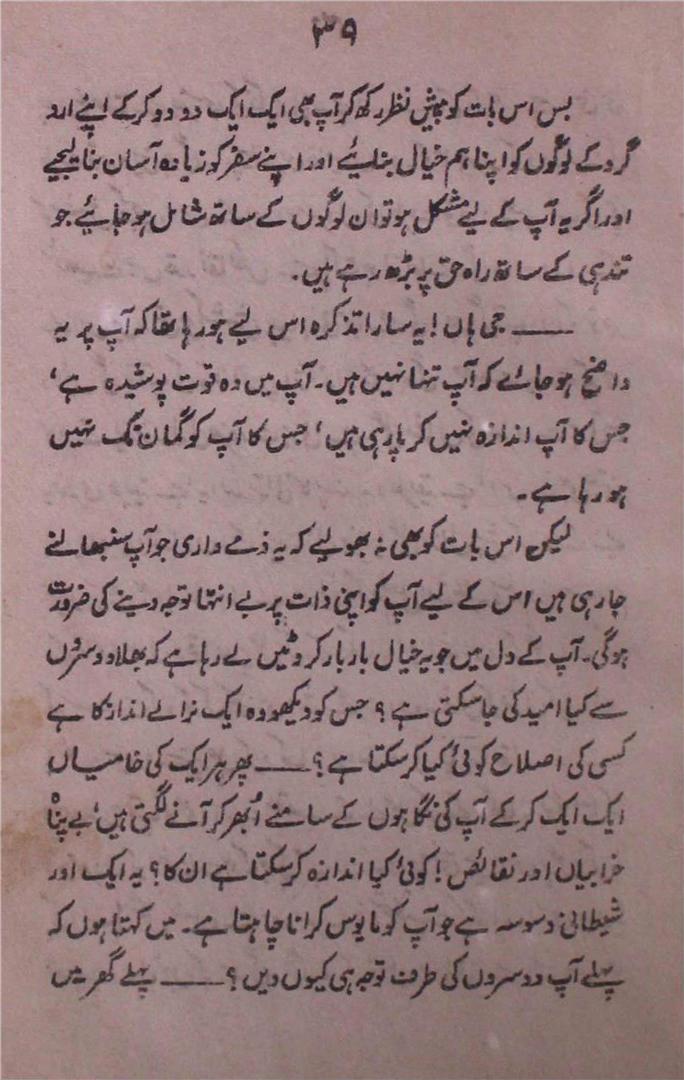 ۳۹
بس اس بات کو پیش نظر رکھ کر آپ بھی ایک ایک دو دو کرکے اپنے ارد
گرد کے لوگوں کو اپنا ہم خیال بنالیئے اور اپنے سفر کو زیادہ آسان بنا لیجیے
اور اگر یہ آپ کے لیے مشکل ہو تو ان لوگوں کے ساتھ شامل ہو جایئے جو
تندہی کے ساتھ راہ حق پر بڑھ رہے ہیں۔
—— جی ہاں! یہ سارا تذکرہ اس لیے ہو رہا تھا کہ آپ پر یہ
واضح ہو جائے کہ آپ تنہا نہیں ہیں۔ آپ میں وہ قوت پوشیدہ ہے،
جس کا آپ اندازہ نہیں کر پا رہی ہیں، جس کا آپ کو گمان تک نہیں
ہو رہا ہے۔
لیکن اس بات کو بھی نہ بھولیے کہ یہ ذمے داری جو آپ سنبھالنے
جا رہی ہیں اس کے لیے آپ کو اپنی ذات پر بے انتہا توجہ دینے کی ضرورت
ہوگی۔ آپ کے دل میں جو یہ خیال بار بار کروٹیں لے رہا ہے کہ بھلا دوسروں
سے کیا امید کی جا سکتی ہے؟ جس کو دیکھو وہ ایک نرالے انداز کا ہے
کسی کی اصلاح کوئی کیا کر سکتا ہے؟ —— پھر ہر ایک کی خامیاں
ایک ایک کرکے آپ کی نگاہوں کے سامنے اُبھر کر آنے لگتی ہیں، بے پناہ
خرابیاں اور نقائص! کوئی کیا اندازہ کر سکتا ہے ان کا؟ یہ ایک اور
شیطانی وسوسہ ہے جو آپ کو مایوس کرانا چاہتا ہے۔ میں کہتا ہوں کہ
پہلے آپ دوسروں کی طرف توجہ ہی کیوں دیں؟ —— پہلے گھر میں